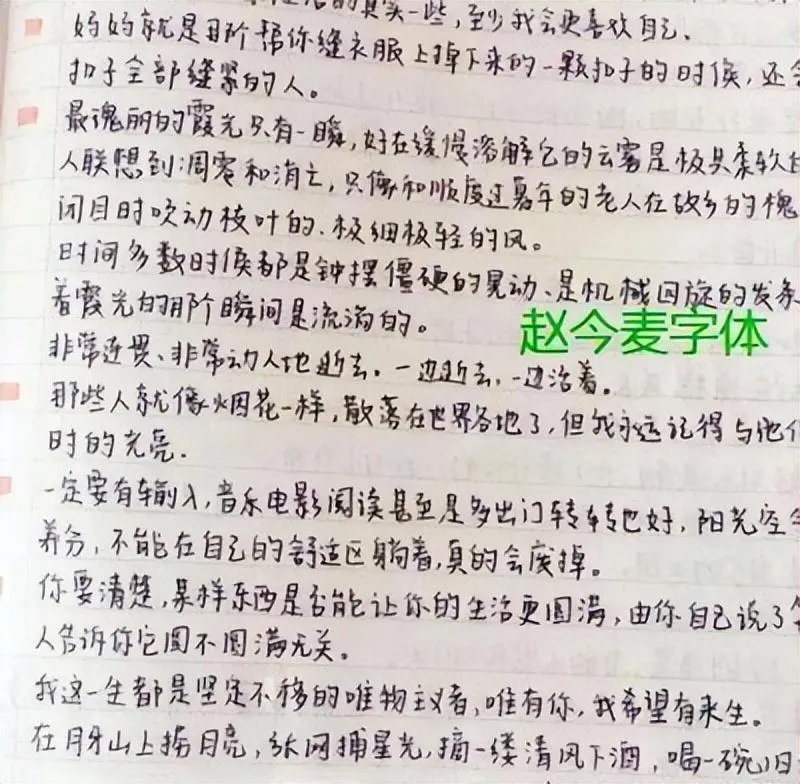 的真实一些，至少我会更喜欢自己.
妈妈就是那个帮你缝衣服上掉下来的一颗扣子的时候，还会
扣子全部缝紧的人。
最瑰丽的霞光只有一瞬，好在缓慢溶解它的云雾是极具柔软的
人联想到凋零和消亡，只像和顺度过暮年的老人在故乡的槐
闭目时吹动枝叶的、极细极轻的风。
时间多数时候都是钟摆僵硬的晃动、是机械回旋的发条
着霞光的那个瞬间是流淌的。
赵今麦字体
非常迟畏、非常动人地逝去。一边逝去，一边活着。
那些人就像烟花一样，散落在世界各地了，但我永远记得与他们
时的光亮.
一定要有输入，音乐电影阅读甚至是多出门转转也好，阳光空气
养分，不能在自己的舒适区躺着，真的会废掉。
你要清楚，某样东西是否能让你的生活更圆满，由你自己说了算
人告诉你它圆不圆满无关。
我这一生都是坚定不移的唯物主义者，唯有你，我希望有来生。
在月牙山上捞月亮，张网捕星光，摘一缕清风下酒，喝一碗旧